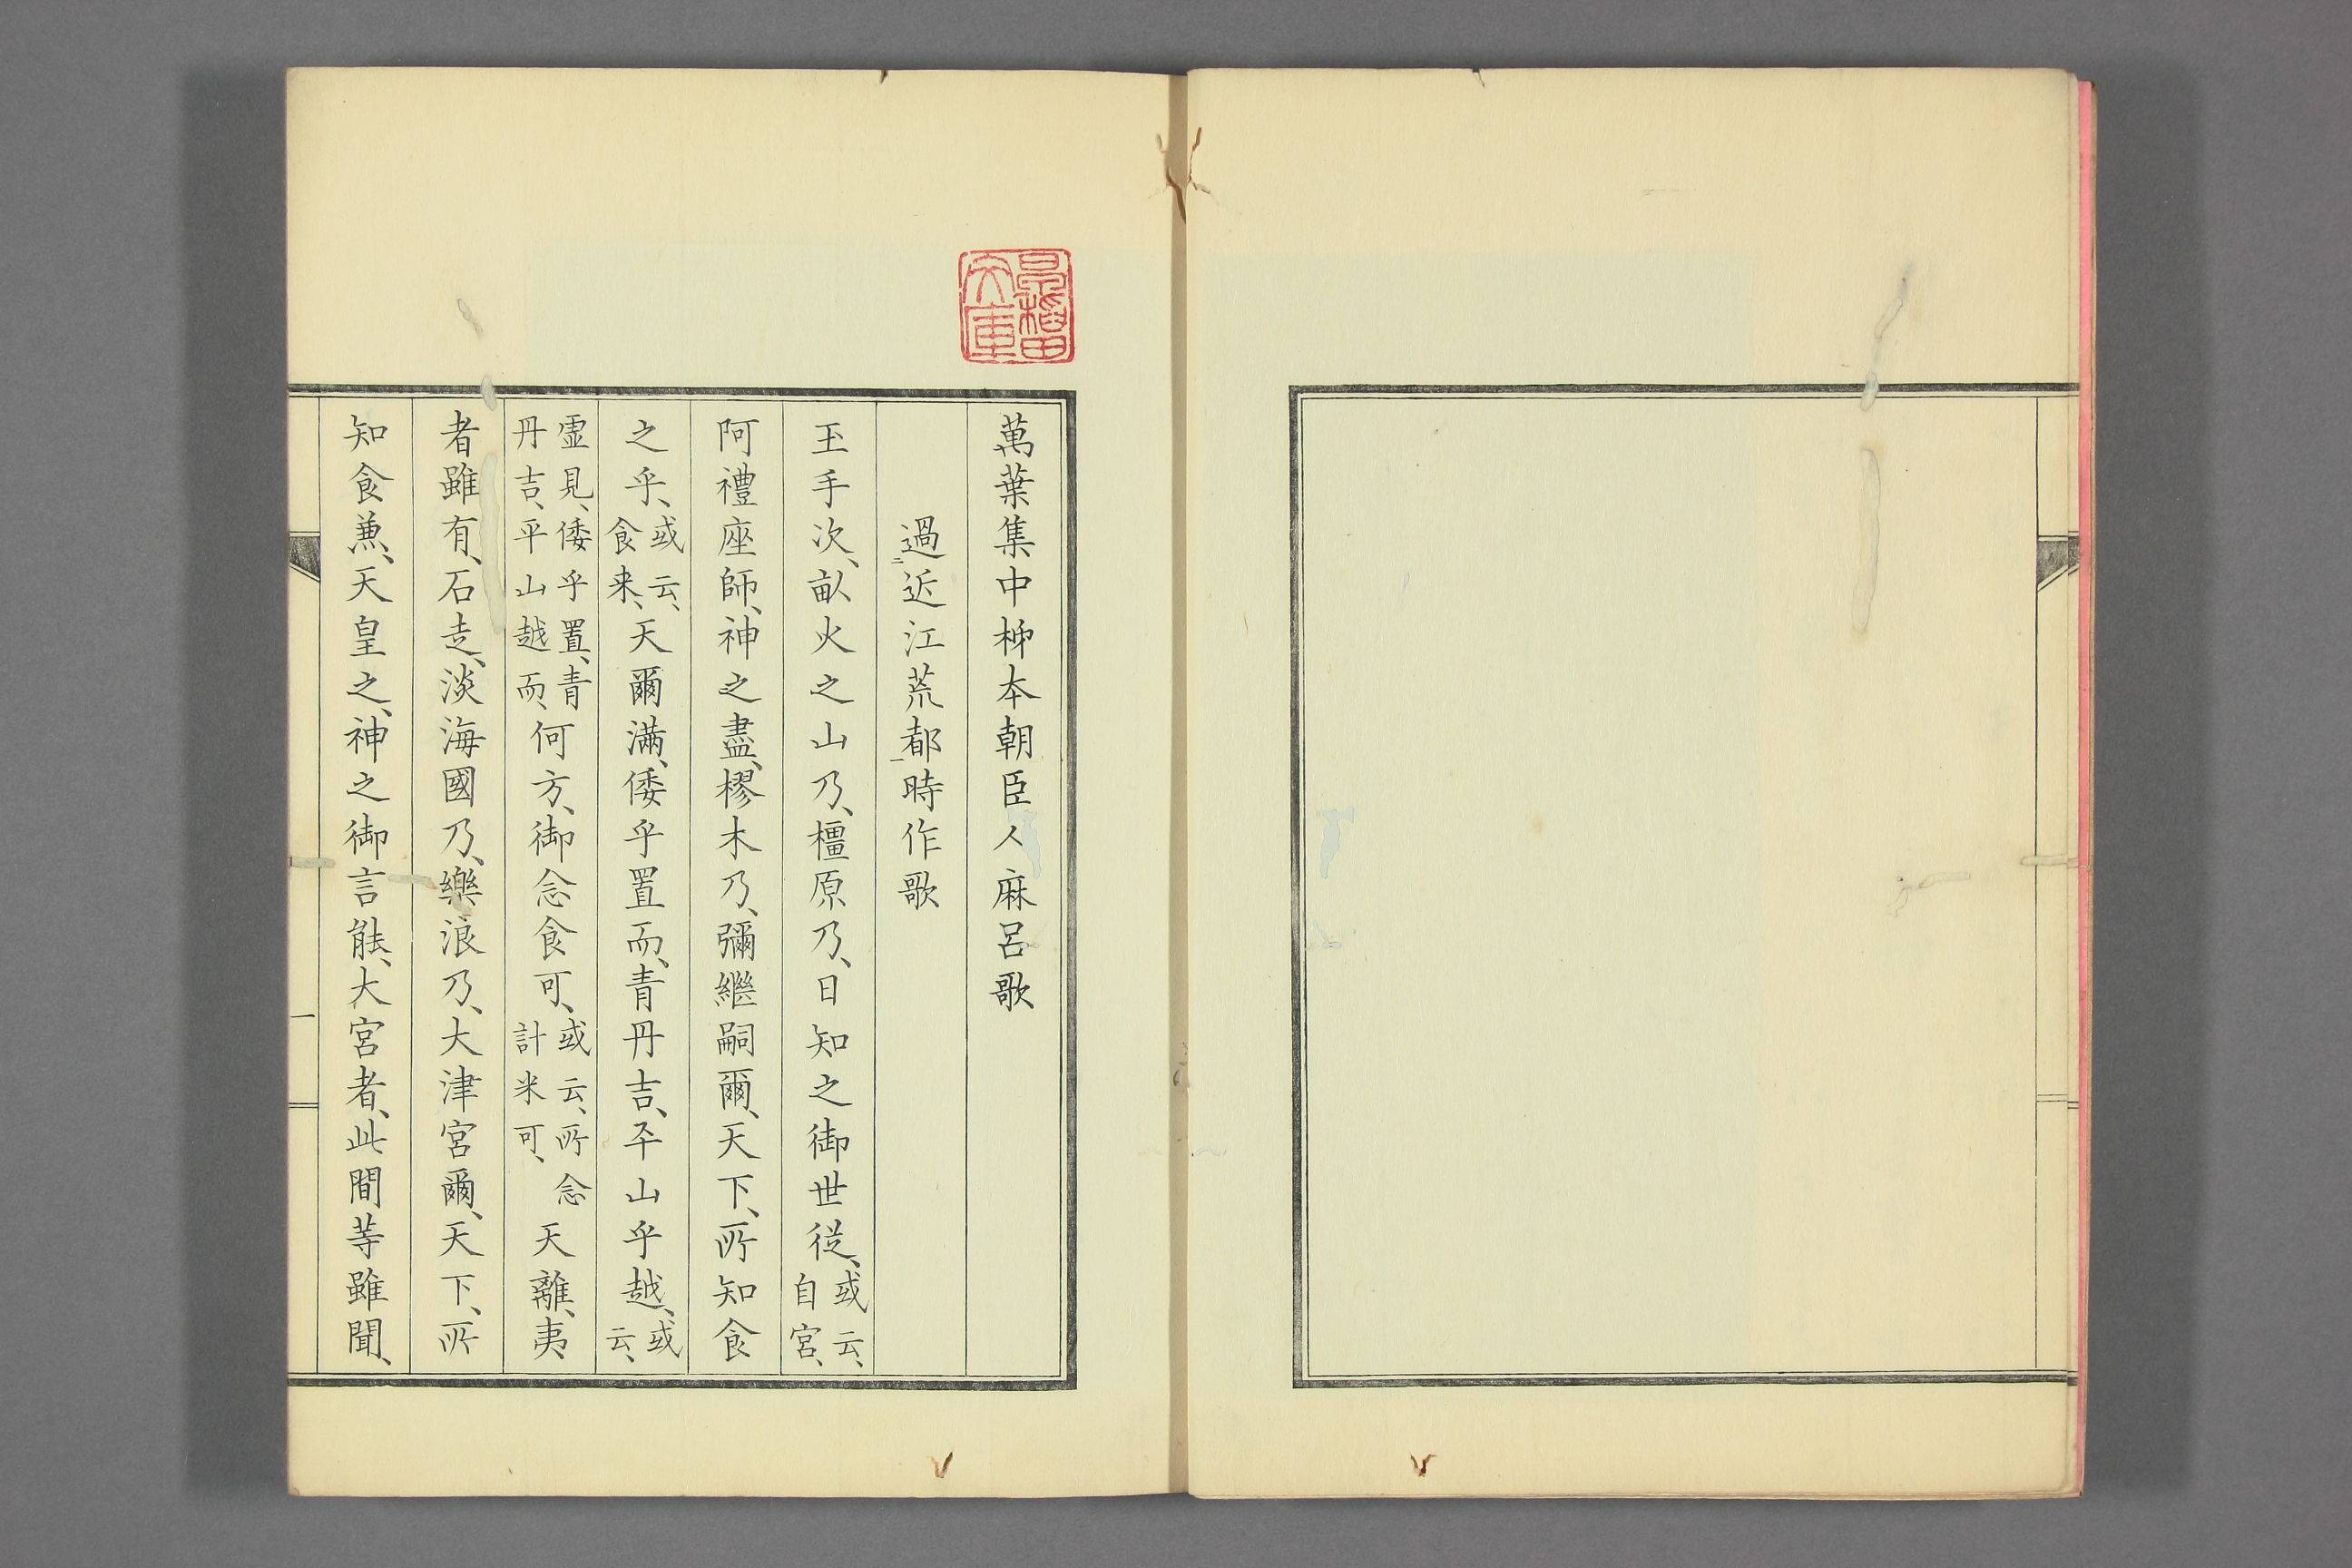 萬葉集中柹本朝臣人麻呂歌
過近江荒都時作歌
玉手次、畝火之山乃、橿原乃、日知之御世從、或云、自宮、
阿禮座師、神之盡、樛木乃、彌繼嗣爾、天下、所知食
之乎、或云、食来、天爾滿、倭乎置而、青丹吉、平山乎越、或云、
虛見、倭乎置、青丹吉、平山越而、何方、御念食可、或云、所念計米可、天離、夷
者雖有、石走、淡海國乃、樂浪乃、大津宮爾、天下、所
知食兼、天皇之、神之御言能、大宮者、此間等雖聞、
一